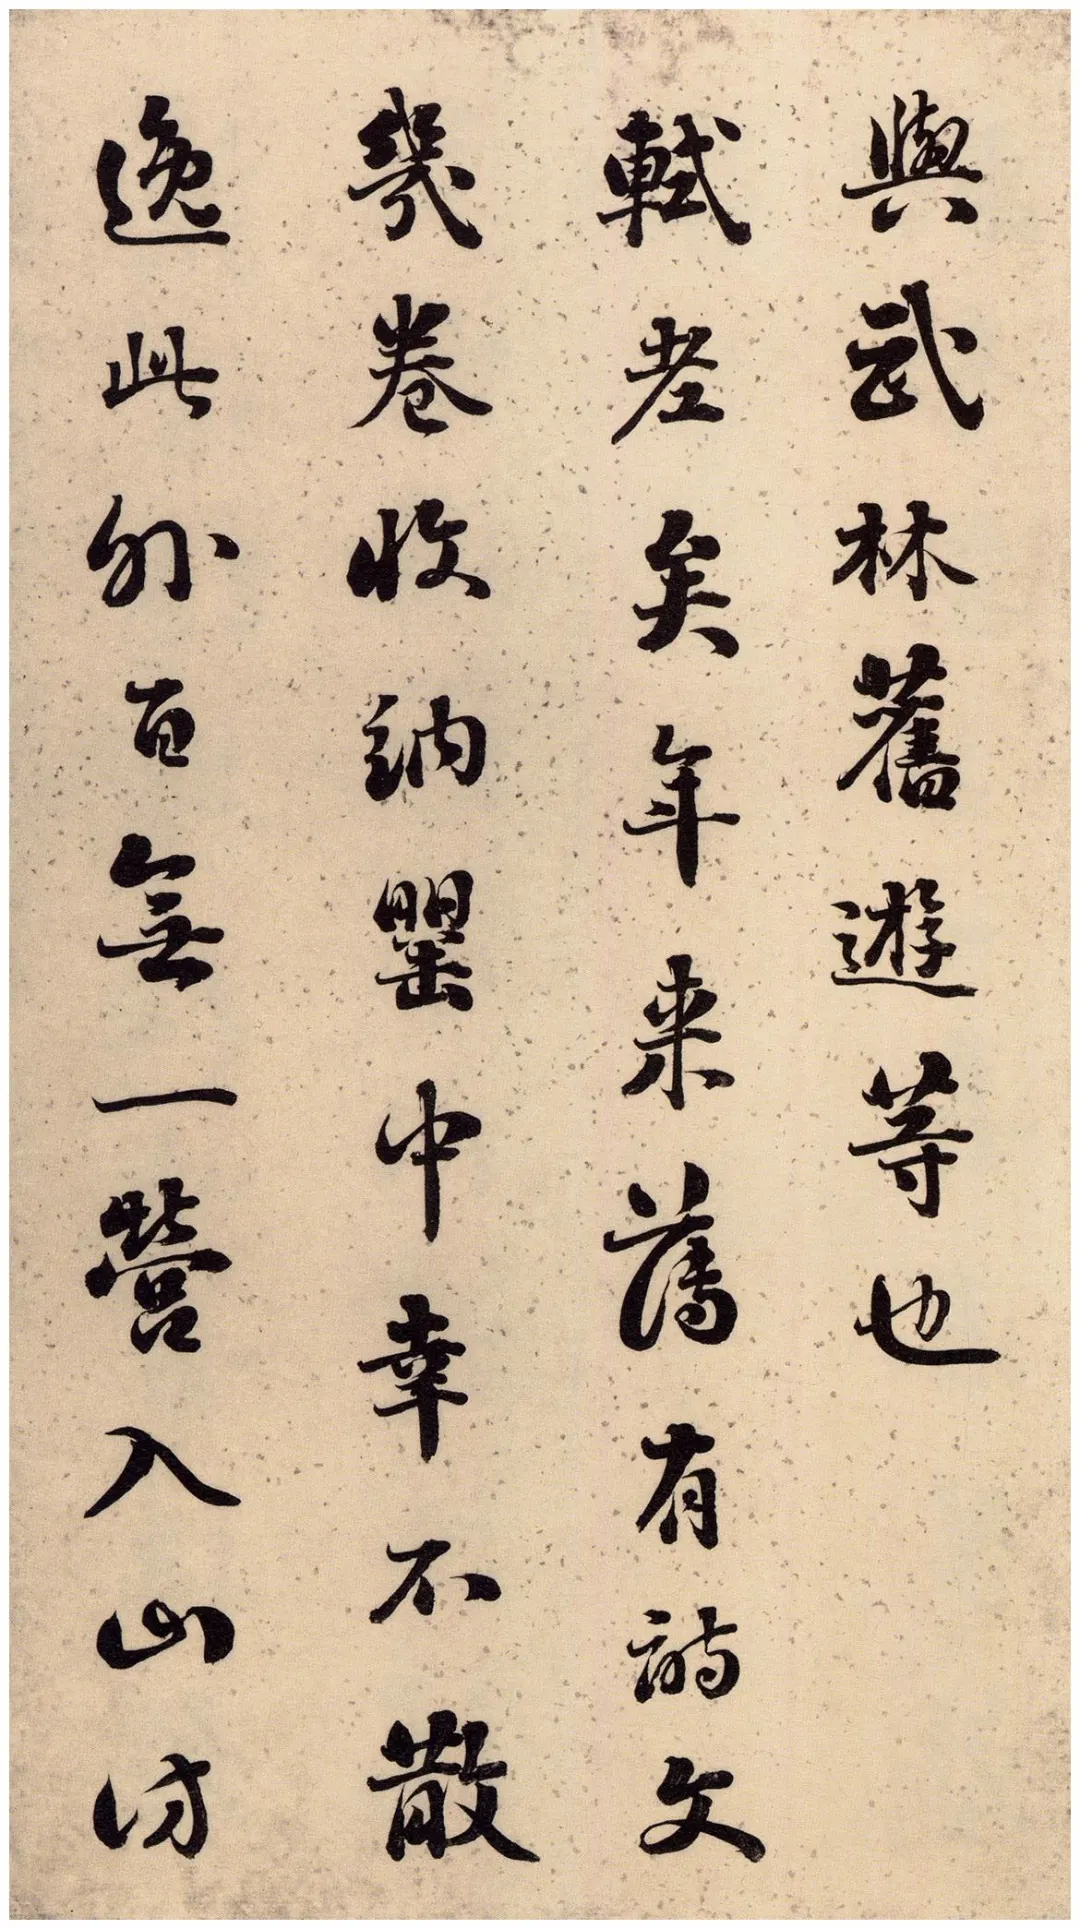 與武林舊遊等也
軾老矣年来舊有詩文
幾卷收納罌中幸不散
逸此外百無一營入山付